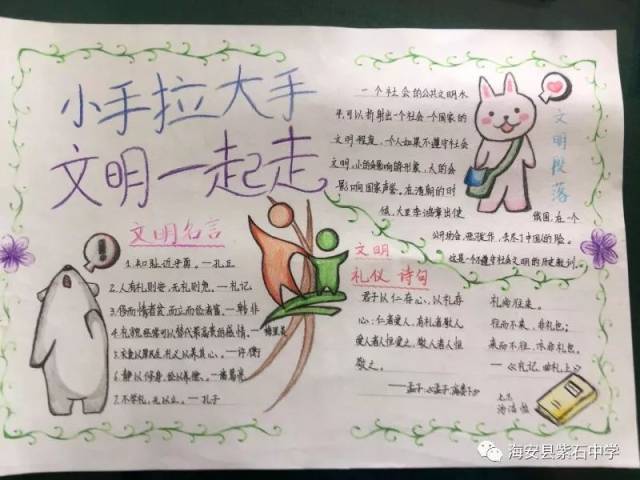 小手拉大手
文明一起走
一个社会的公共文明水
平,可以折射出一个社会一个国家的
文明程度,一个人如果不遵守社会
文明,小的会影响自身形象,大的会
影响国家声誉。在清朝的时
候,大臣李鸿章出使
俄国,在一个
公开场合,
丢尽了中国人的脸。
文明段落
文明名言
1.知耻近乎勇。—孔丘
2.人有礼则安,无礼则危。—礼记
3.侈而惰者贫,而力而俭者富。—韩非
4.礼貌经常可以替代最高贵的感情。—
梅里美
5.
礼义以养其心。—许衡
6.静以修身,俭以养德。—诸葛亮
7.不学礼,无以立。—孔子
文明
礼仪 诗句
君子以仁存心,以礼存
心;仁者爱人,有礼者敬人
爱人者人恒爱之,敬人者人恒
敬之。
——孟子
礼尚往来。
往而不来,非礼也;
来而不往,亦非礼也。
—《礼记·曲礼上》
海安县紫石中学